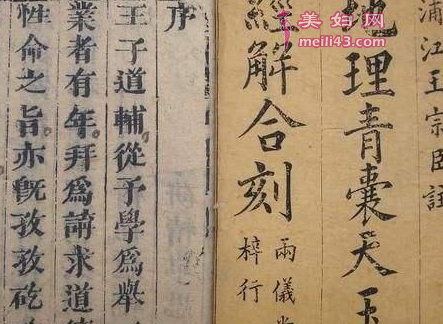 美妇网
meili43.com
浦江王宗臣註
地理青囊天玉
經解合刻
兩儀
梓行
序
王子道輔從予學爲舉
業者有年拜爲請求道
性命之旨亦旣孜孜矻